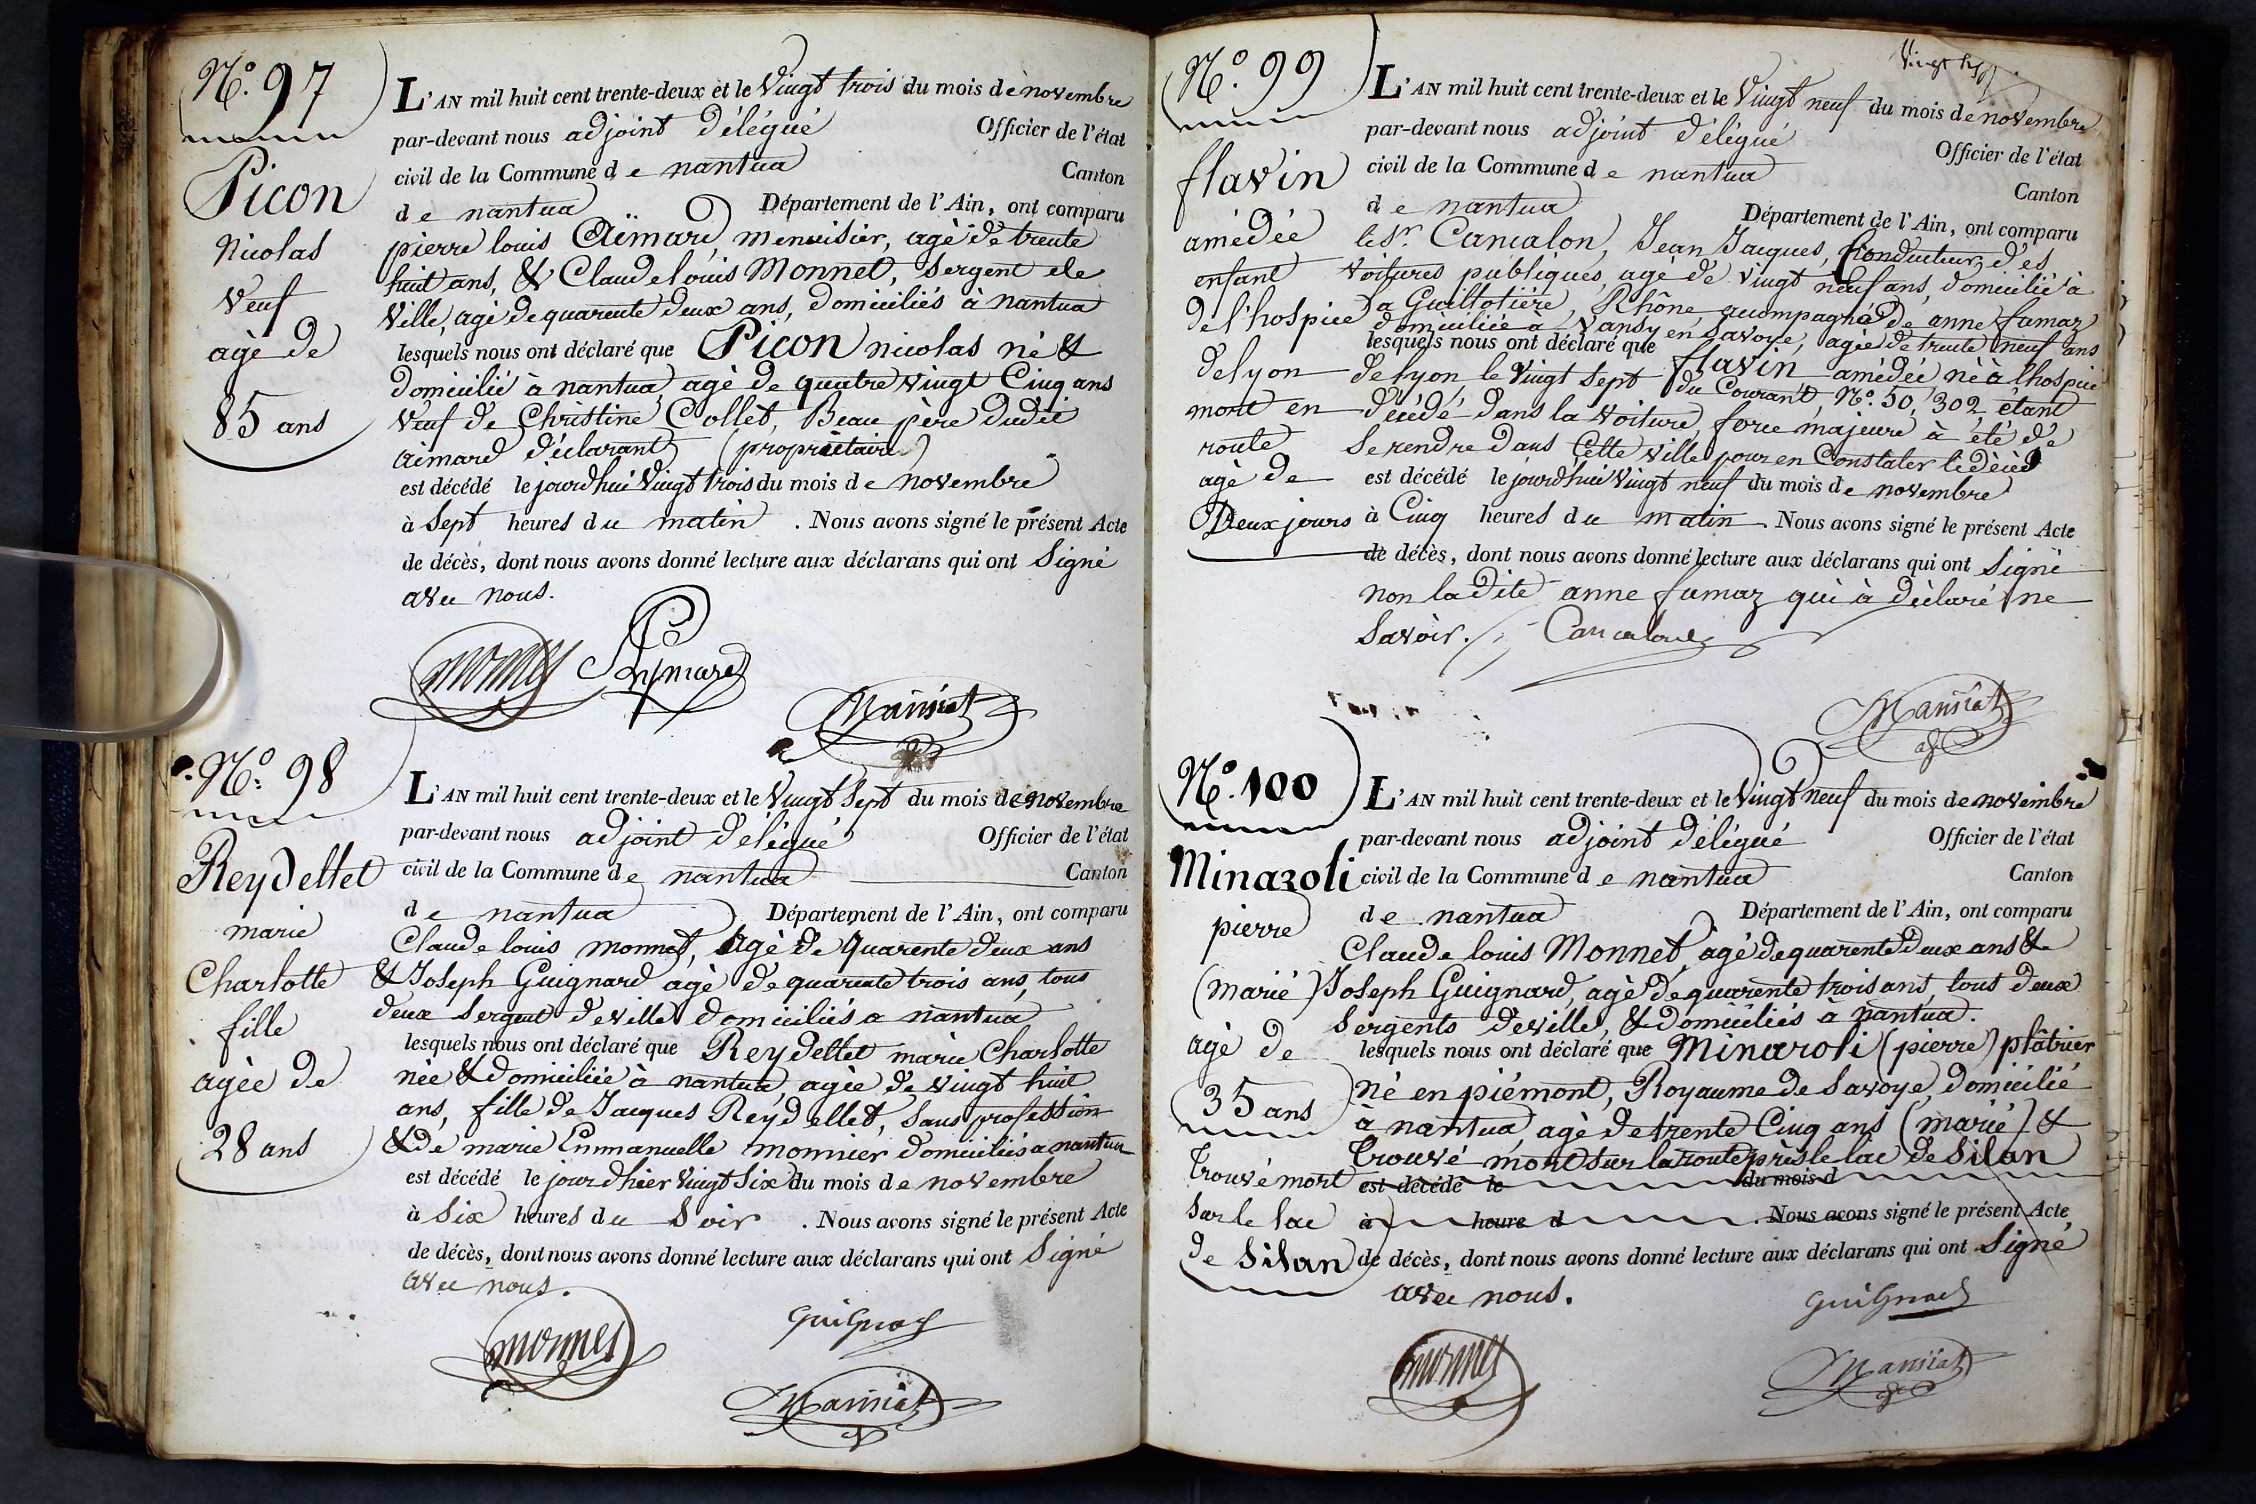 N.º 97
Picon
Nicolas
Veuf
agè de
85 ans
L'AN mil huit cent trente-deux et le Vingt trois du mois de novembre
par-devant nous adjoint délégué Officier de l'état
civil de la Commune de nantua Canton
de nantua Département de l'Ain, ont comparu
pierre louis Aimard, menuisier, agè de trente
huit ans, & Claude louis Monnet, Sergent de
Ville, agè de quarente deux ans, domiciliés à nantua
lesquels nous ont déclaré que Picon nicolas né &
domicilié à nantua, agè de quatre vingt Cinq ans
Veuf de Christine Collet, Beau père dudit
aimard déclarant (propriètaire)
est décédé le jourdhui Vingt trois du mois de novembre
à Sept heures du matin . Nous avons signé le présent Acte
de décès, dont nous avons donné lecture aux déclarans qui ont Signé
avec nous.
monnet Aymard
Manniat
N.º 98
Reydellet
marie
Charlotte
fille
agèe de
28 ans
L'AN mil huit cent trente-deux et le Vingt Sept du mois de novembre
par-devant nous adjoint délégué Officier de l'état
civil de la Commune de nantua Canton
de nantua Département de l'Ain, ont comparu
Claude louis monnet, agè de quarente deux ans
& Joseph Guignard agè de quarente trois ans, tous
deux Sergent de ville domiciliés a nantua
lesquels nous ont déclaré que Reydellet marie Charlotte
née & domiciliée à nantua, agèe de vingt huit
ans, fille de Jacques Reydellet, Sans profession
& de marie Emmanuelle monnier domiciliés a nantua
est décédé le jour dhier Vingt Six du mois de novembre
à Six heures du Soir . Nous avons signé le présent Acte
de décès, dont nous avons donné lecture aux déclarans qui ont Signé
avec nous.
monnet Guignard
Manniat
Vingt sept
N.º 99
flavin
amédée
enfant
de l'hospice
de lyon
mort en
route
agè de
Deux jours
L'AN mil huit cent trente-deux et le Vingt neuf du mois de novembre
par-devant nous adjoint délégué Officier de l'état
civil de la Commune de nantua Canton
de nantua Département de l'Ain, ont comparu
le Sr. Cancalon, Jean Jacques, Conducteur des
voitures publiques, agè de vingt neuf ans, domicilié à
a Guillotière, Rhône accompagné de anne fumaz
domiciliée à Vansy en Savoye, agèe de trente neuf ans
lesquels nous ont déclaré que flavin amédée, né à l'hospice
de lyon, le Vingt Sept du Courant, N.º 50,302, étant
décédé dans la voiture, force majeure à été de
Se rendre dans Cette Ville pour en Constater le décès
est décédé le jourdhui Vingt neuf du mois de novembre
à Cinq heures du matin . Nous avons signé le présent Acte
de décès, dont nous avons donné lecture aux déclarans qui ont Signé
non la dite anne fumaz qui à déclaré ne
Savoir. Cancalon
Manniat
adj
N.º 100
Minazoli
pierre
(marié)
agè de
35 ans
Trouvé mort
Sur le lac
de Silan
L'AN mil huit cent trente-deux et le Vingt neuf du mois de novembre
par-devant nous adjoint délégué Officier de l'état
civil de la Commune de nantua Canton
de nantua Département de l'Ain, ont comparu
Claude louis Monnet, agè de quarente deux ans &
Joseph Guignard, agè de quarente trois ans, tous deux
Sergents de ville, & domiciliés à nantua.
lesquels nous ont déclaré que Minaroli (pierre) plâtrier
né en piémont, Royaume de Savoye, domicilié
à nantua, agè de trente Cinq ans (marié) &
Trouvé mort sur la route près le lac de Silan
est décédé le du mois d
à heure d . Nous avons signé le présent Acte
de décès, dont nous avons donné lecture aux déclarans qui ont Signé
avec nous.
Guignard
monnet
Manniat
adj